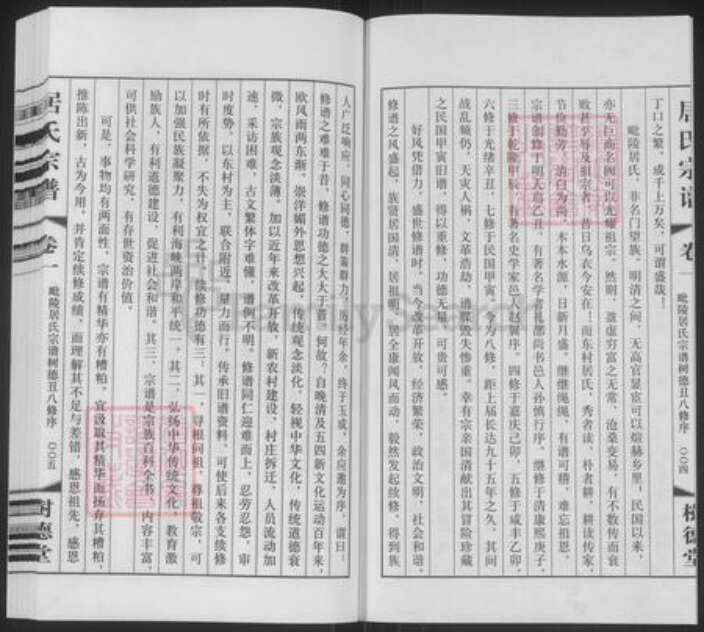 居氏宗谱 卷一 毗陵居氏宗谱树德丑八修序 〇〇四
丁口之繁，成千上万矣，可谓盛哉！
毗陵居氏，非名门望族。明清之间，无高官显宦可以煊赫乡里，民国以来，
亦无巨商名阀可以光耀祖宗。然明，盈虚穷富之无常，沧桑变易，有不数传而衰
败甚至辱及祖宗者，昔日乌衣今安在！而东村居氏，秀者读、朴者耕、耕读传家，
节俭勤劳，清白为尚，木本水源，日新月盛，继继绳绳，有谱可稽，难忘祖恩。
宗谱创修于明天启乙丑，有著名学者礼部尚书邑人孙慎行序，继修于清康熙庚子，
三修于乾隆甲辰，有著名史学家邑人赵翼序，四修于嘉庆己卯，五修于咸丰乙卯，
六修于光绪辛丑，七修于民国甲寅，今为八修，距上届长达九十五年之久。其间
战乱频仍，天灾人祸，文革浩劫，谱牒毁失惨重。幸有宗亲国清献出其冒险珍藏
之民国甲寅旧谱，得以重修，功德无量，可贵可感。
好风凭借力，盛世修谱时。当今改革开放，经济繁荣，政治文明，社会和谐。
修谱之风盛起，族贤居国清、居祖明、居全康闻风而动，毅然发起续修，得到族
人广泛响应，同心同德，群策群力，历经年余，终于玉成，余应邀为序，谓曰：
修谱之难难于昔，修谱功德之大大于昔，何故？自晚清及五四新文化运动百年来，
欧风雨两东渐，崇洋媚外思想兴起，传统观念淡化，轻视中华文化，传统道德衰
微，宗族观念淡薄。加以近年来改革开放，新农村建设，村庄拆迁，人员流动加
速，采访困难，古文繁体字难懂，谱例不明，修谱同仁迎难而上，忍劳忍怨，审
时度势，以东村为主，联合附近，量力而行，传承旧谱资料，可使后来各支续修
时有所依据，不失为权宜之计。续修功德有三：其一，寻根问祖，尊祖敬宗，可
以加强民族凝聚力，有利海峡两岸和平统一。其二，弘扬中华传统文化，教育激
励族人，有利道德建设，促进社会和谐。其三，宗谱是宗族百科全书，内容丰富，
可供社会科学研究，有存世资治价值。
可是，事物均有两面性，宗谱有精华亦有糟粕，宜汲取其精华而扬弃其糟粕，
推陈出新，古为今用，并肯定续修成绩，而理解其不足与差错，感恩祖先，感恩
居氏宗谱 卷一 毗陵居氏宗谱树德丑八修序 〇〇五
树德堂